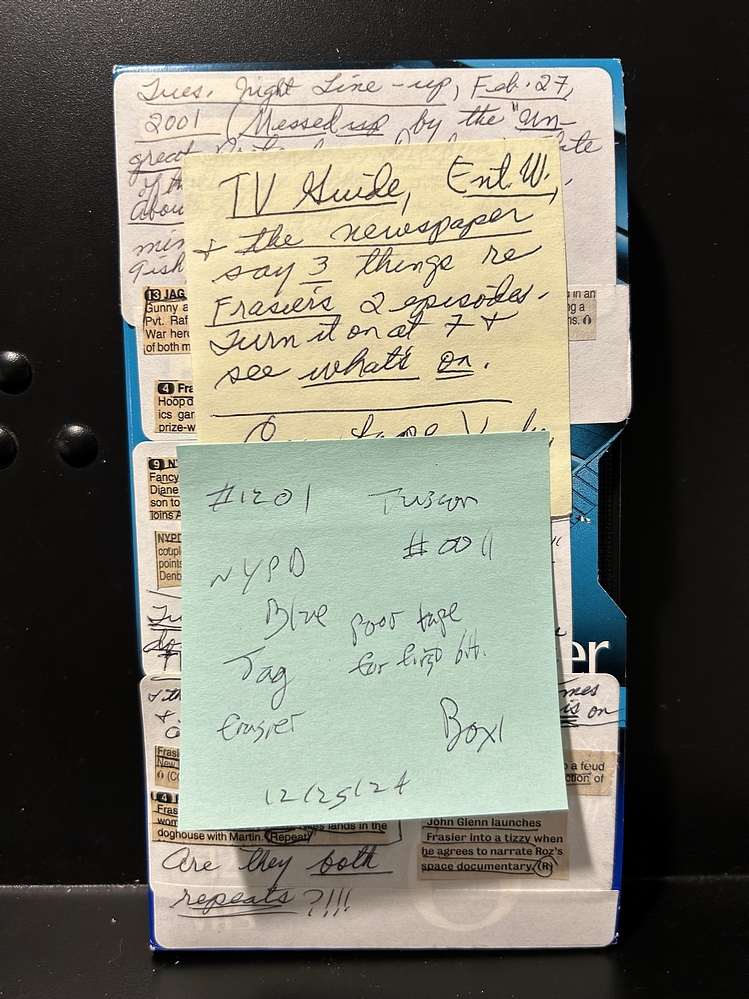 Tues. Night Line-up, Feb. 27,
2001 (Messed up by the "Un-
great
of th
Abou
min
Gish
TV Guide, Ent. W.,
+ the newspaper
say 3 things re
Frasier's 2 episodes.
Turn it on at 7 +
see what's on.
13 JAG
Gunny a
Pvt. Raf
War hero
of both m
in an
ng a
ns.
4 Fra
Hoop d
ics gar
prize-w
9 N
Fancy
Diane
son to
joins A
NYPD
coupl
points
Denb
#1201 Tuscon
#0011
NYPD
Blue Poor tape
for first bit.
Jag
Frasier Box1
12/25/24
er
mes
is on
Frasi
New
(CC
o a feud
ction of
4
Fras
wom
lands in the
doghouse with Martin. (Repeat)
John Glenn launches
Frasier into a tizzy when
he agrees to narrate Roz's
space documentary. (R)
Are they both
repeats?!!!